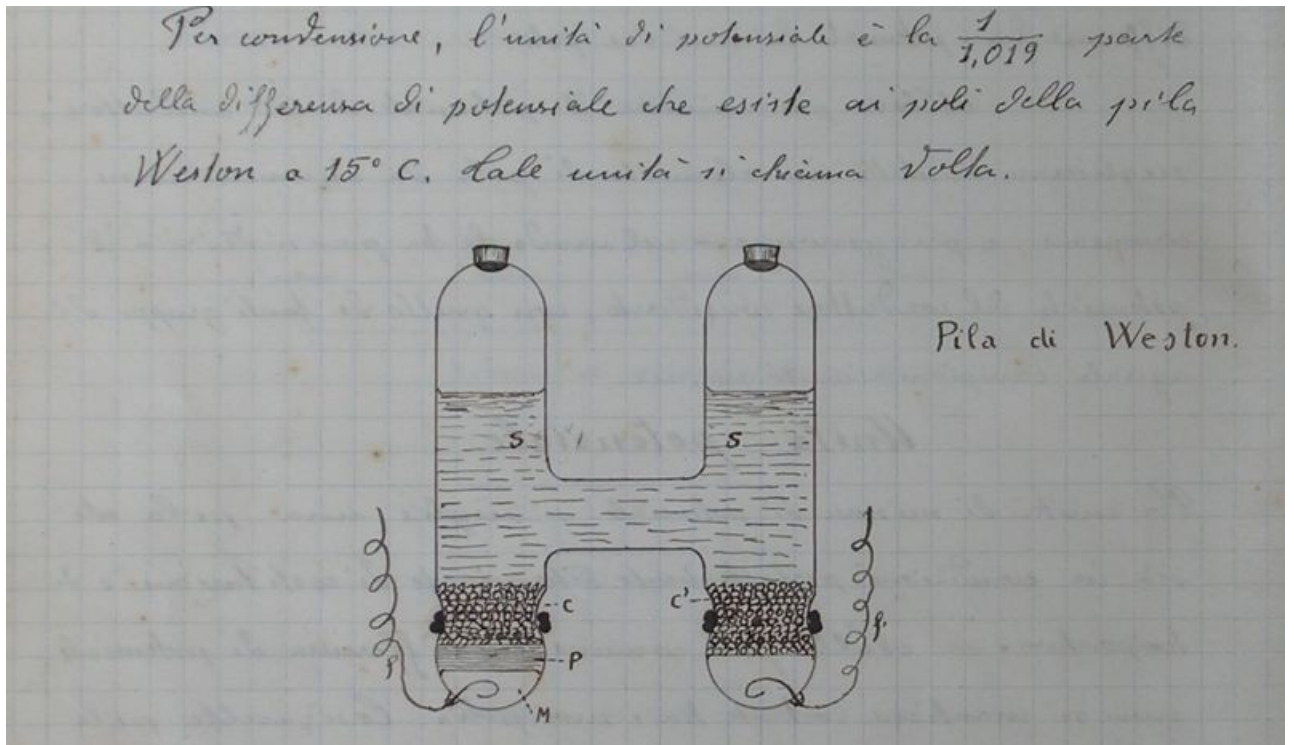 Per condensione, l'unità di potenziale è la 1/1,019 parte
della differenza di potenziale che esiste ai poli della pila
Weston a 15° C. Tale unità si chiama Volta.
Pila di Weston.
S S
C C'
P
M